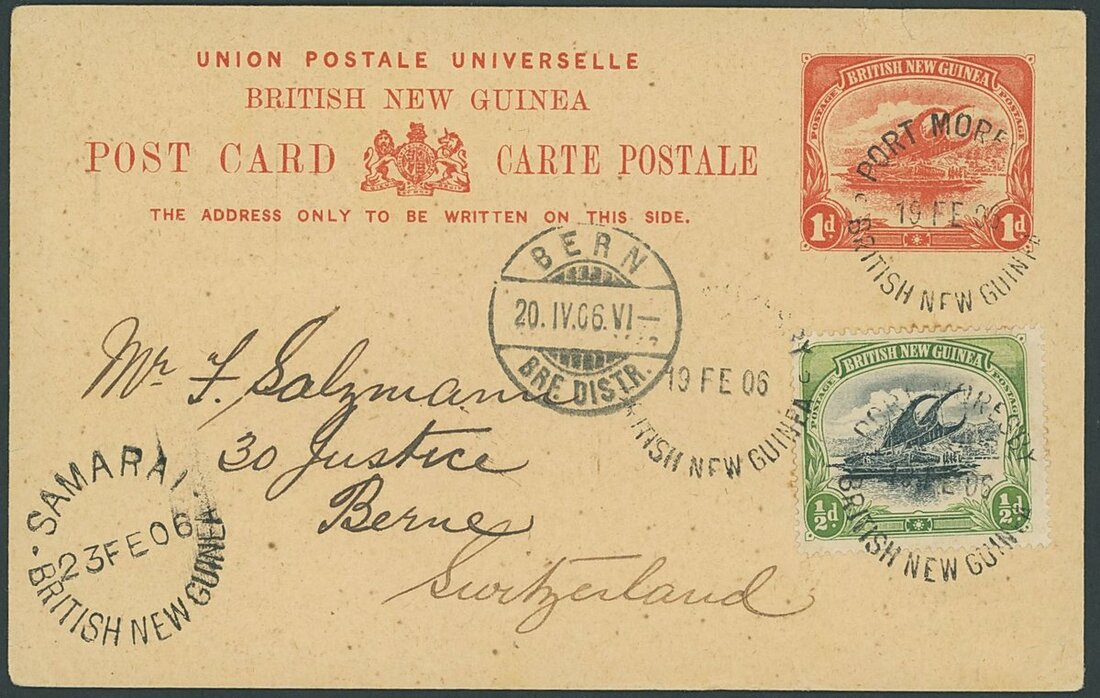 UNION POSTALE UNIVERSELLE
BRITISH NEW GUINEA
POST CARD CARTE POSTALE
THE ADDRESS ONLY TO BE WRITTEN ON THIS SIDE.
BRITISH NEW GUINEA
POSTAGE POSTAGE
1d. 1d.
PORT MORE
19 FE 06
BRITISH NEW GUINEA
BERN
20.IV.06.VI—
BRF. DISTR.
19 FE 06
ITISH NEW GUINEA
BRITISH NEW GUINEA
POSTAGE POSTAGE
½d ½d
PORT MORESBY
FE 06
BRITISH NEW GUIN
Mr F. Salzmann
30 Justice
Berne
Switzerland
SAMARAI
23 FE 06
BRITISH NEW GUINEA